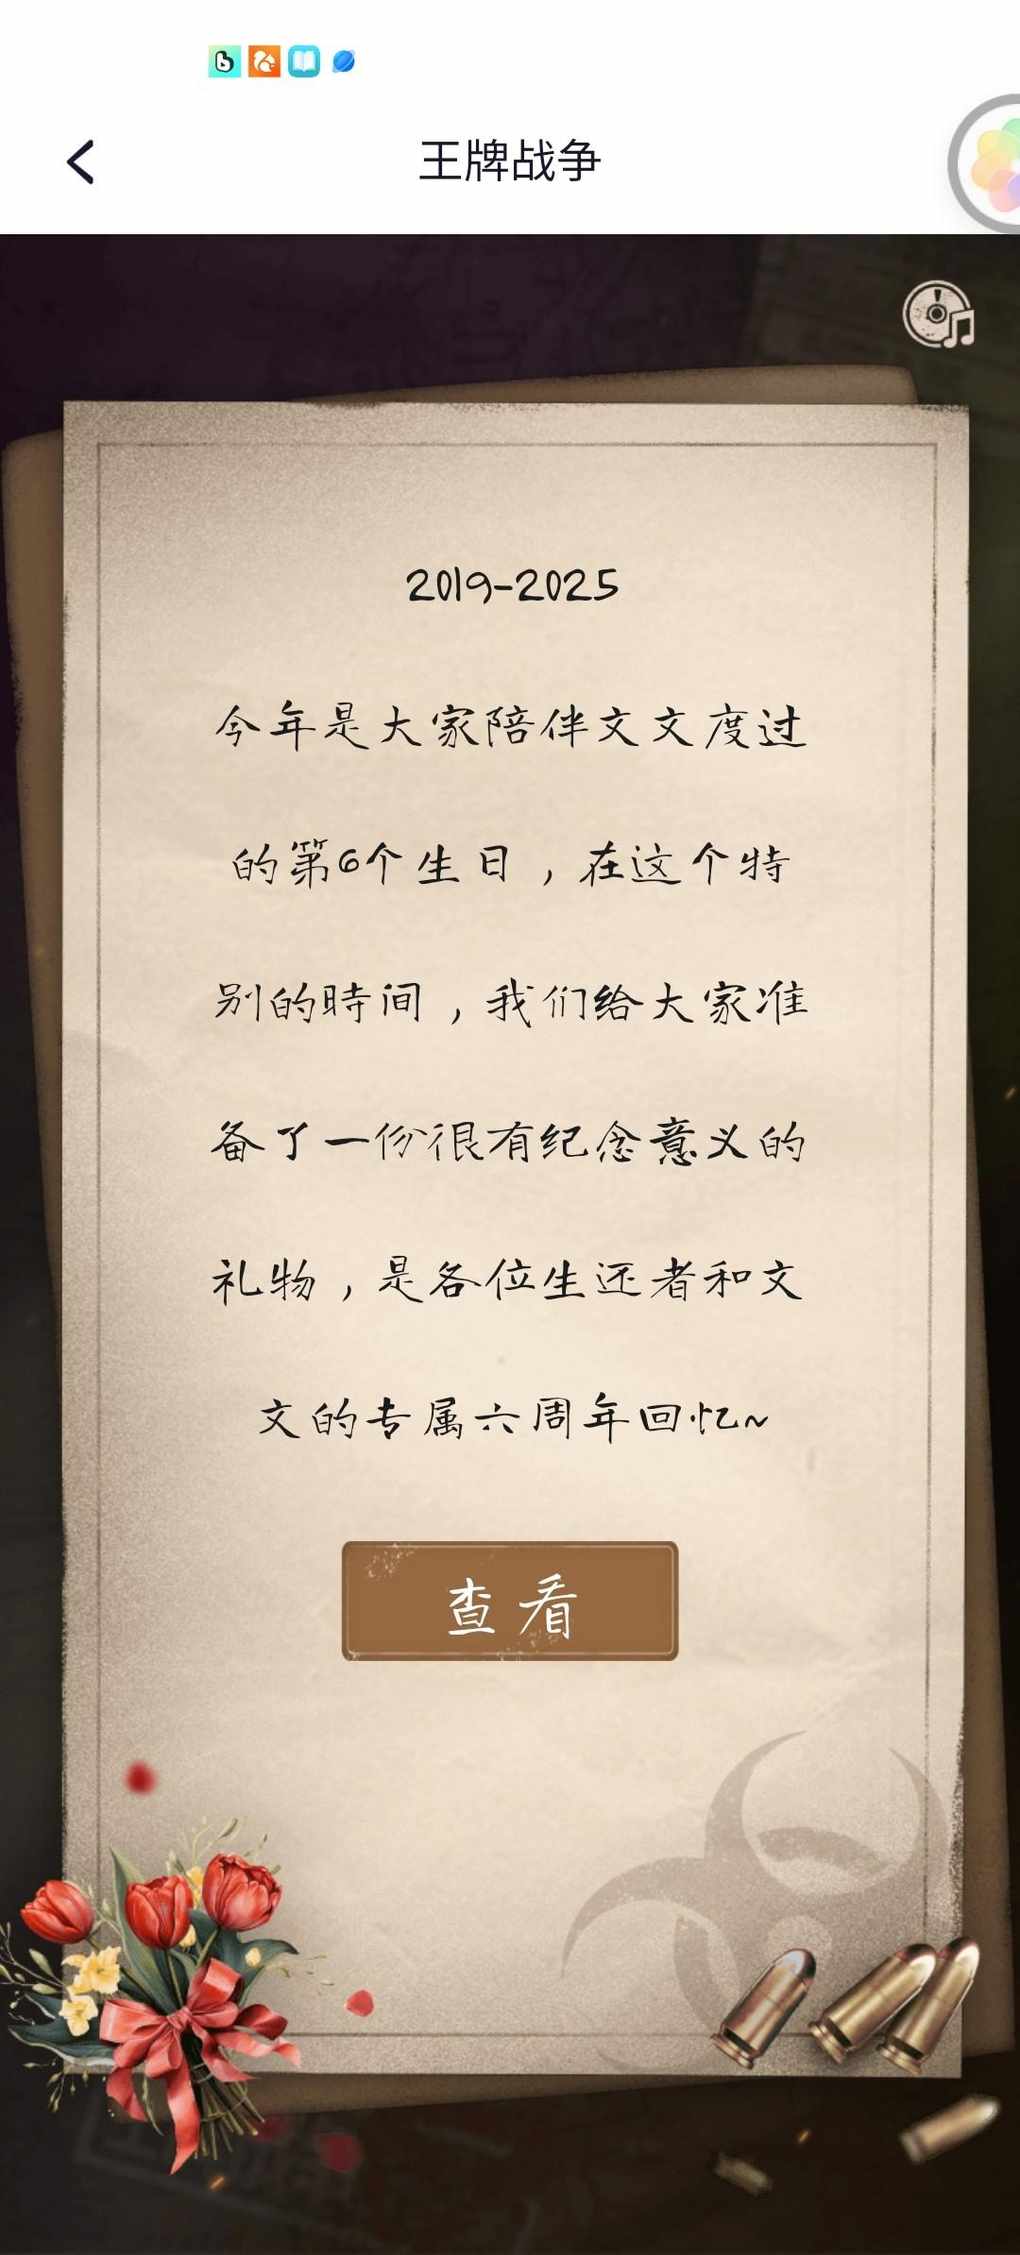 王牌战争
2019-2025
今年是大家陪伴文文度过
的第6个生日，在这个特
别的時间，我们给大家准
备了一份很有纪念意义的
礼物，是各位生还者和文
文的专属六周年回忆~
查看